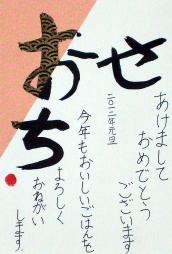 おせ
ち
あけまして
おめでとう
ございます
二〇一二年元旦
今年もおいしいごはんを
よろしく
おねがい
します。